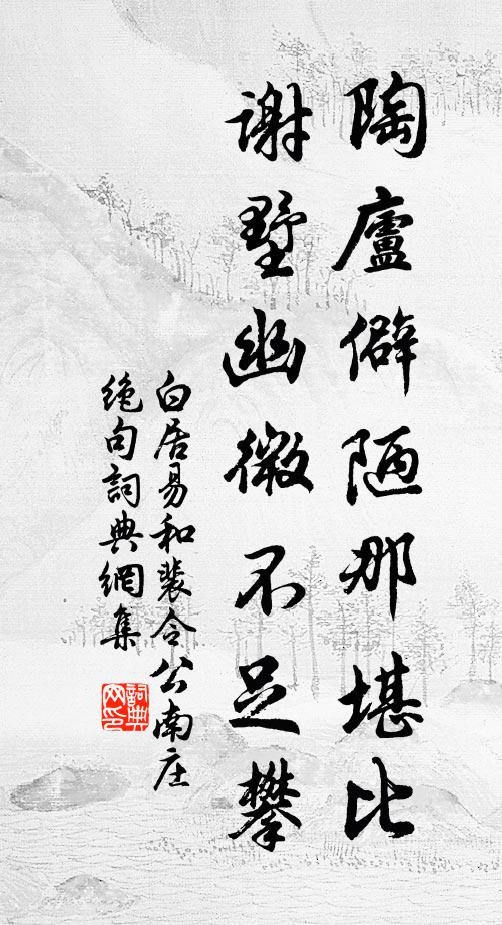 陶廬僻陋那堪比
謝墅幽微不足攀
白居易和裴令公南庄
绝句詞典網集
詞典网印